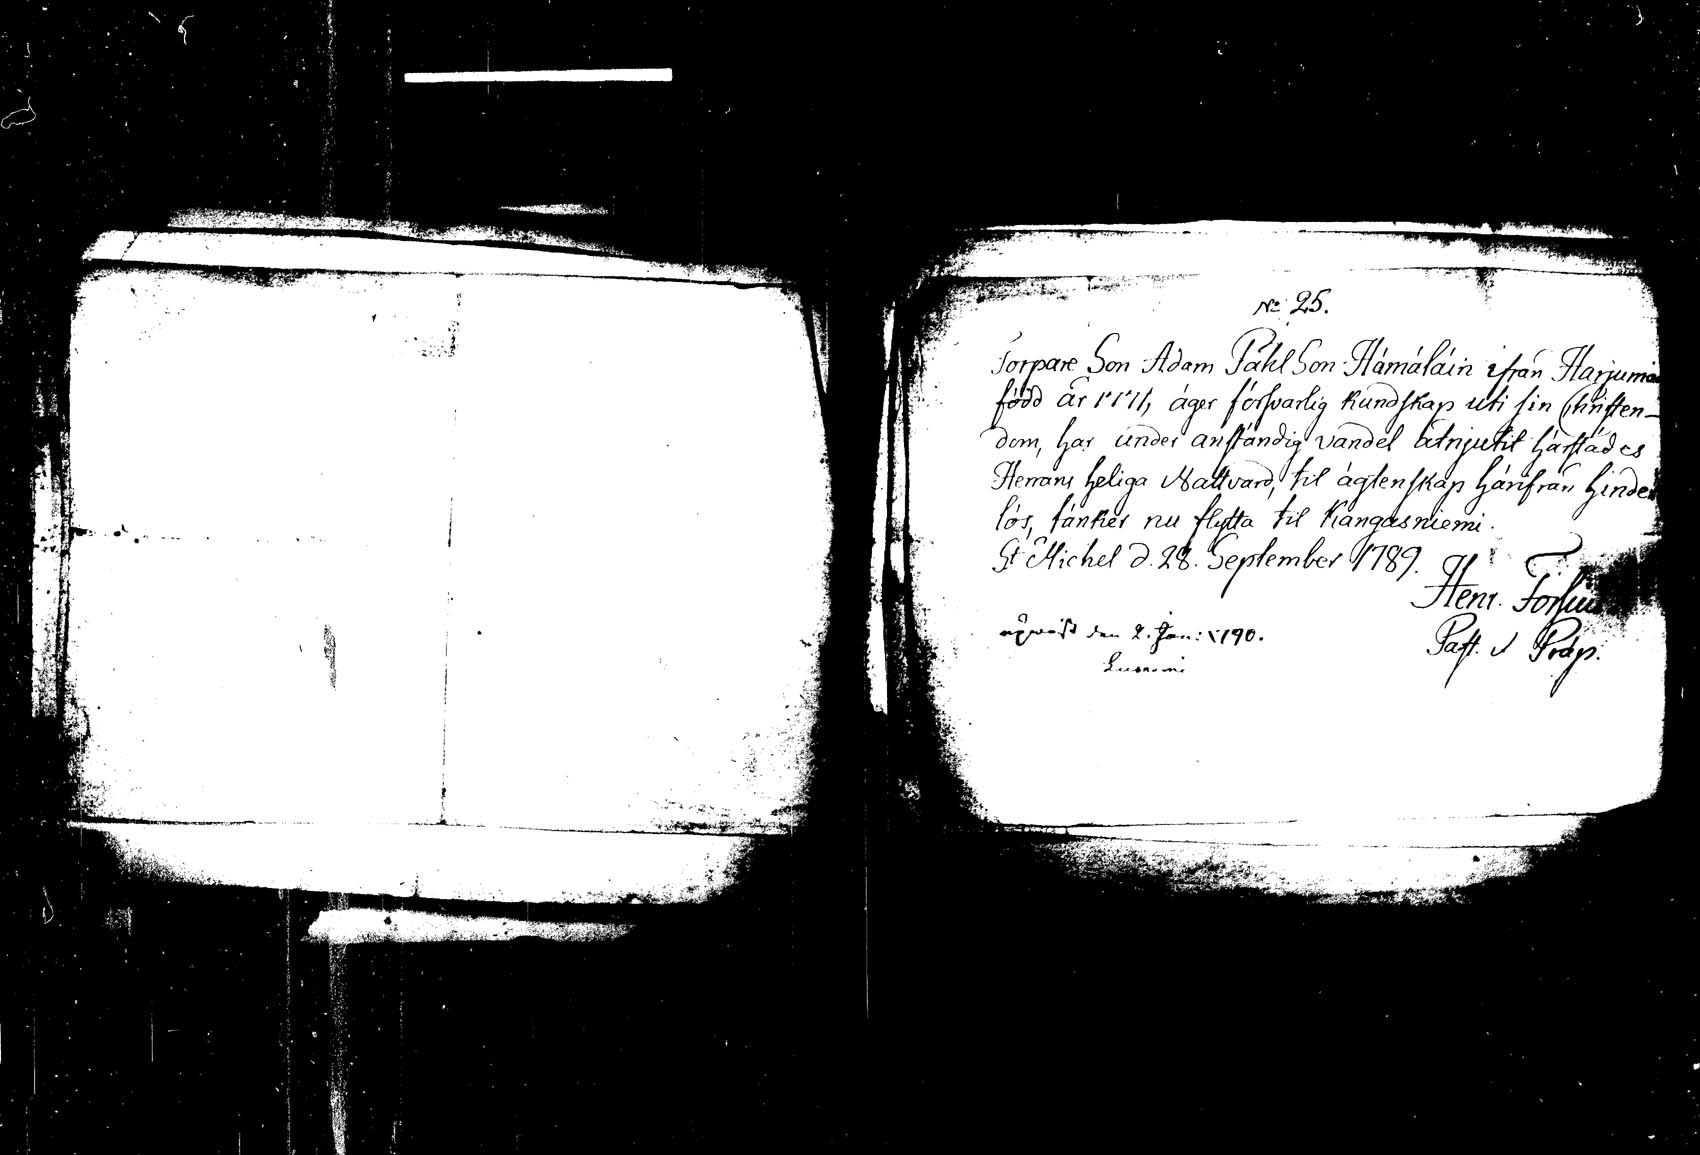 No 25.
Torpare Son Adam Påhl Son Hämäläin ifrån Harjuma
född År 1771, äger försvarlig Kundskap uti sin Christen-
dom, har under anständig vandel åtnjutit härstädes
Herrans heliga Nattvard, til ägtenskap härifrån hinder
lös, tänker nu flytta til Kangasniemi.
St Michel d. 28. September 1789.
Henr. Forsius
Past. Präp.
upwist den 2. Jan: 1790.